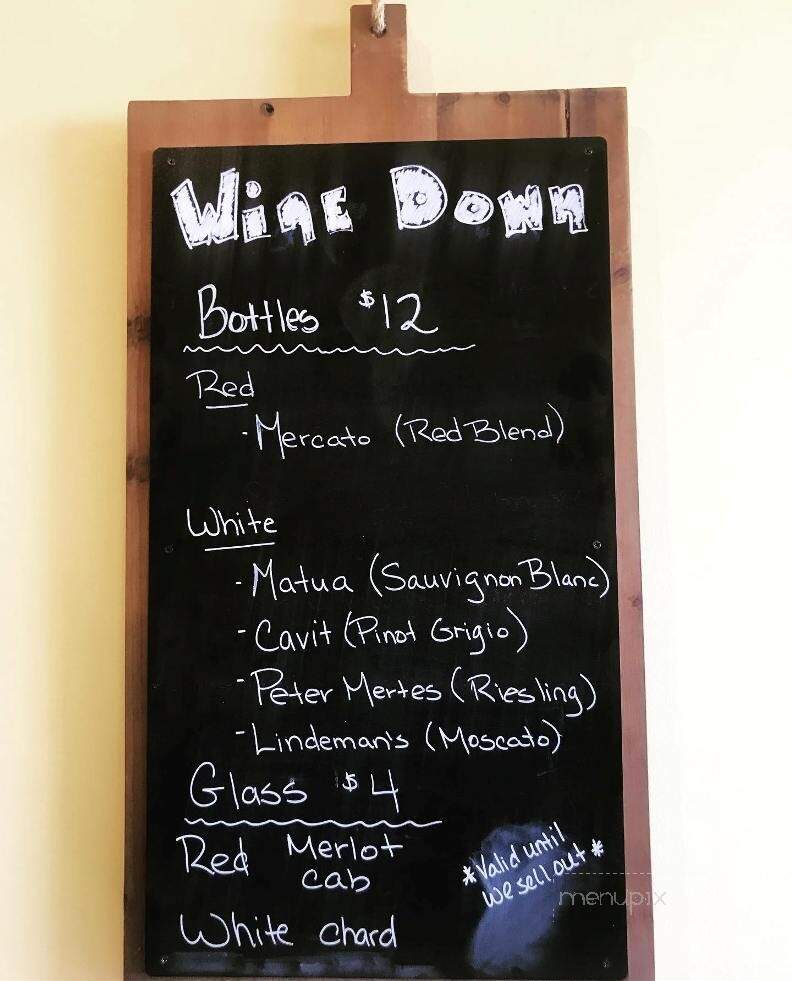 Wine Down
Bottles $12
Red
- Mercato (Red Blend)
White
- Matua (Sauvignon Blanc)
- Cavit (Pinot Grigio)
- Peter Mertes (Riesling)
- Lindeman's (Moscato)
Glass $4
Red Merlot
cab
White chard
*Valid until
we sell out*
menupix